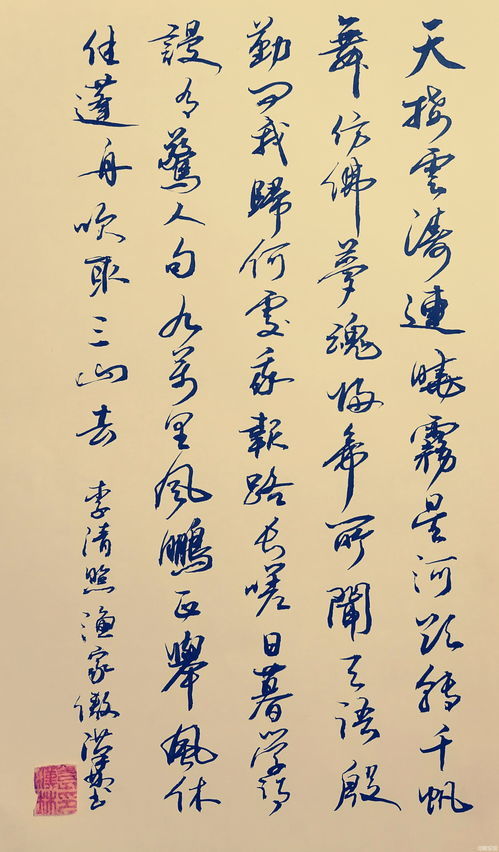 天接雲濤連曉霧星河欲轉千帆
舞仿佛夢魂歸帝所聞天語殷
勤問我歸何處我報路長嗟日暮學詩
謾有驚人句九萬里風鵬正舉風休
住蓬舟吹取三山去
李清照漁家傲書